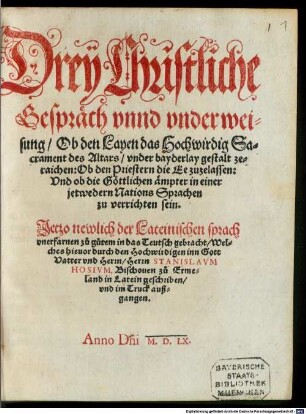 1
Drey Christliche
Gespräch vnnd vnderwei-
sung / Ob den Layen das Hochwirdig Sa-
crament des Altars / vnder bayderlay gestalt ze-
raichen: Ob den Priestern die Ee zuzelassen:
Vnd ob die Göttlichen ämpter in einer
jetwedern Nations Sprachen
zu verrichten sein.
Jetzo newlich der Lateinischen sprach
vnerfarnen zů gůtem in das Teutsch gebracht / Wel-
ches hieuor durch den Hochwirdigen inn Gott
Vatter vnd Herrn / Herrn STANISLAVM
HOSIVM, Bischouen zů Erme-
land in Latein geschriben /
vnd im Truck auß-
gangen.
Anno Dñi M. D. LX.
BAYERISCHE
STAATS-
BIBLIOTHEK
MUENCHEN